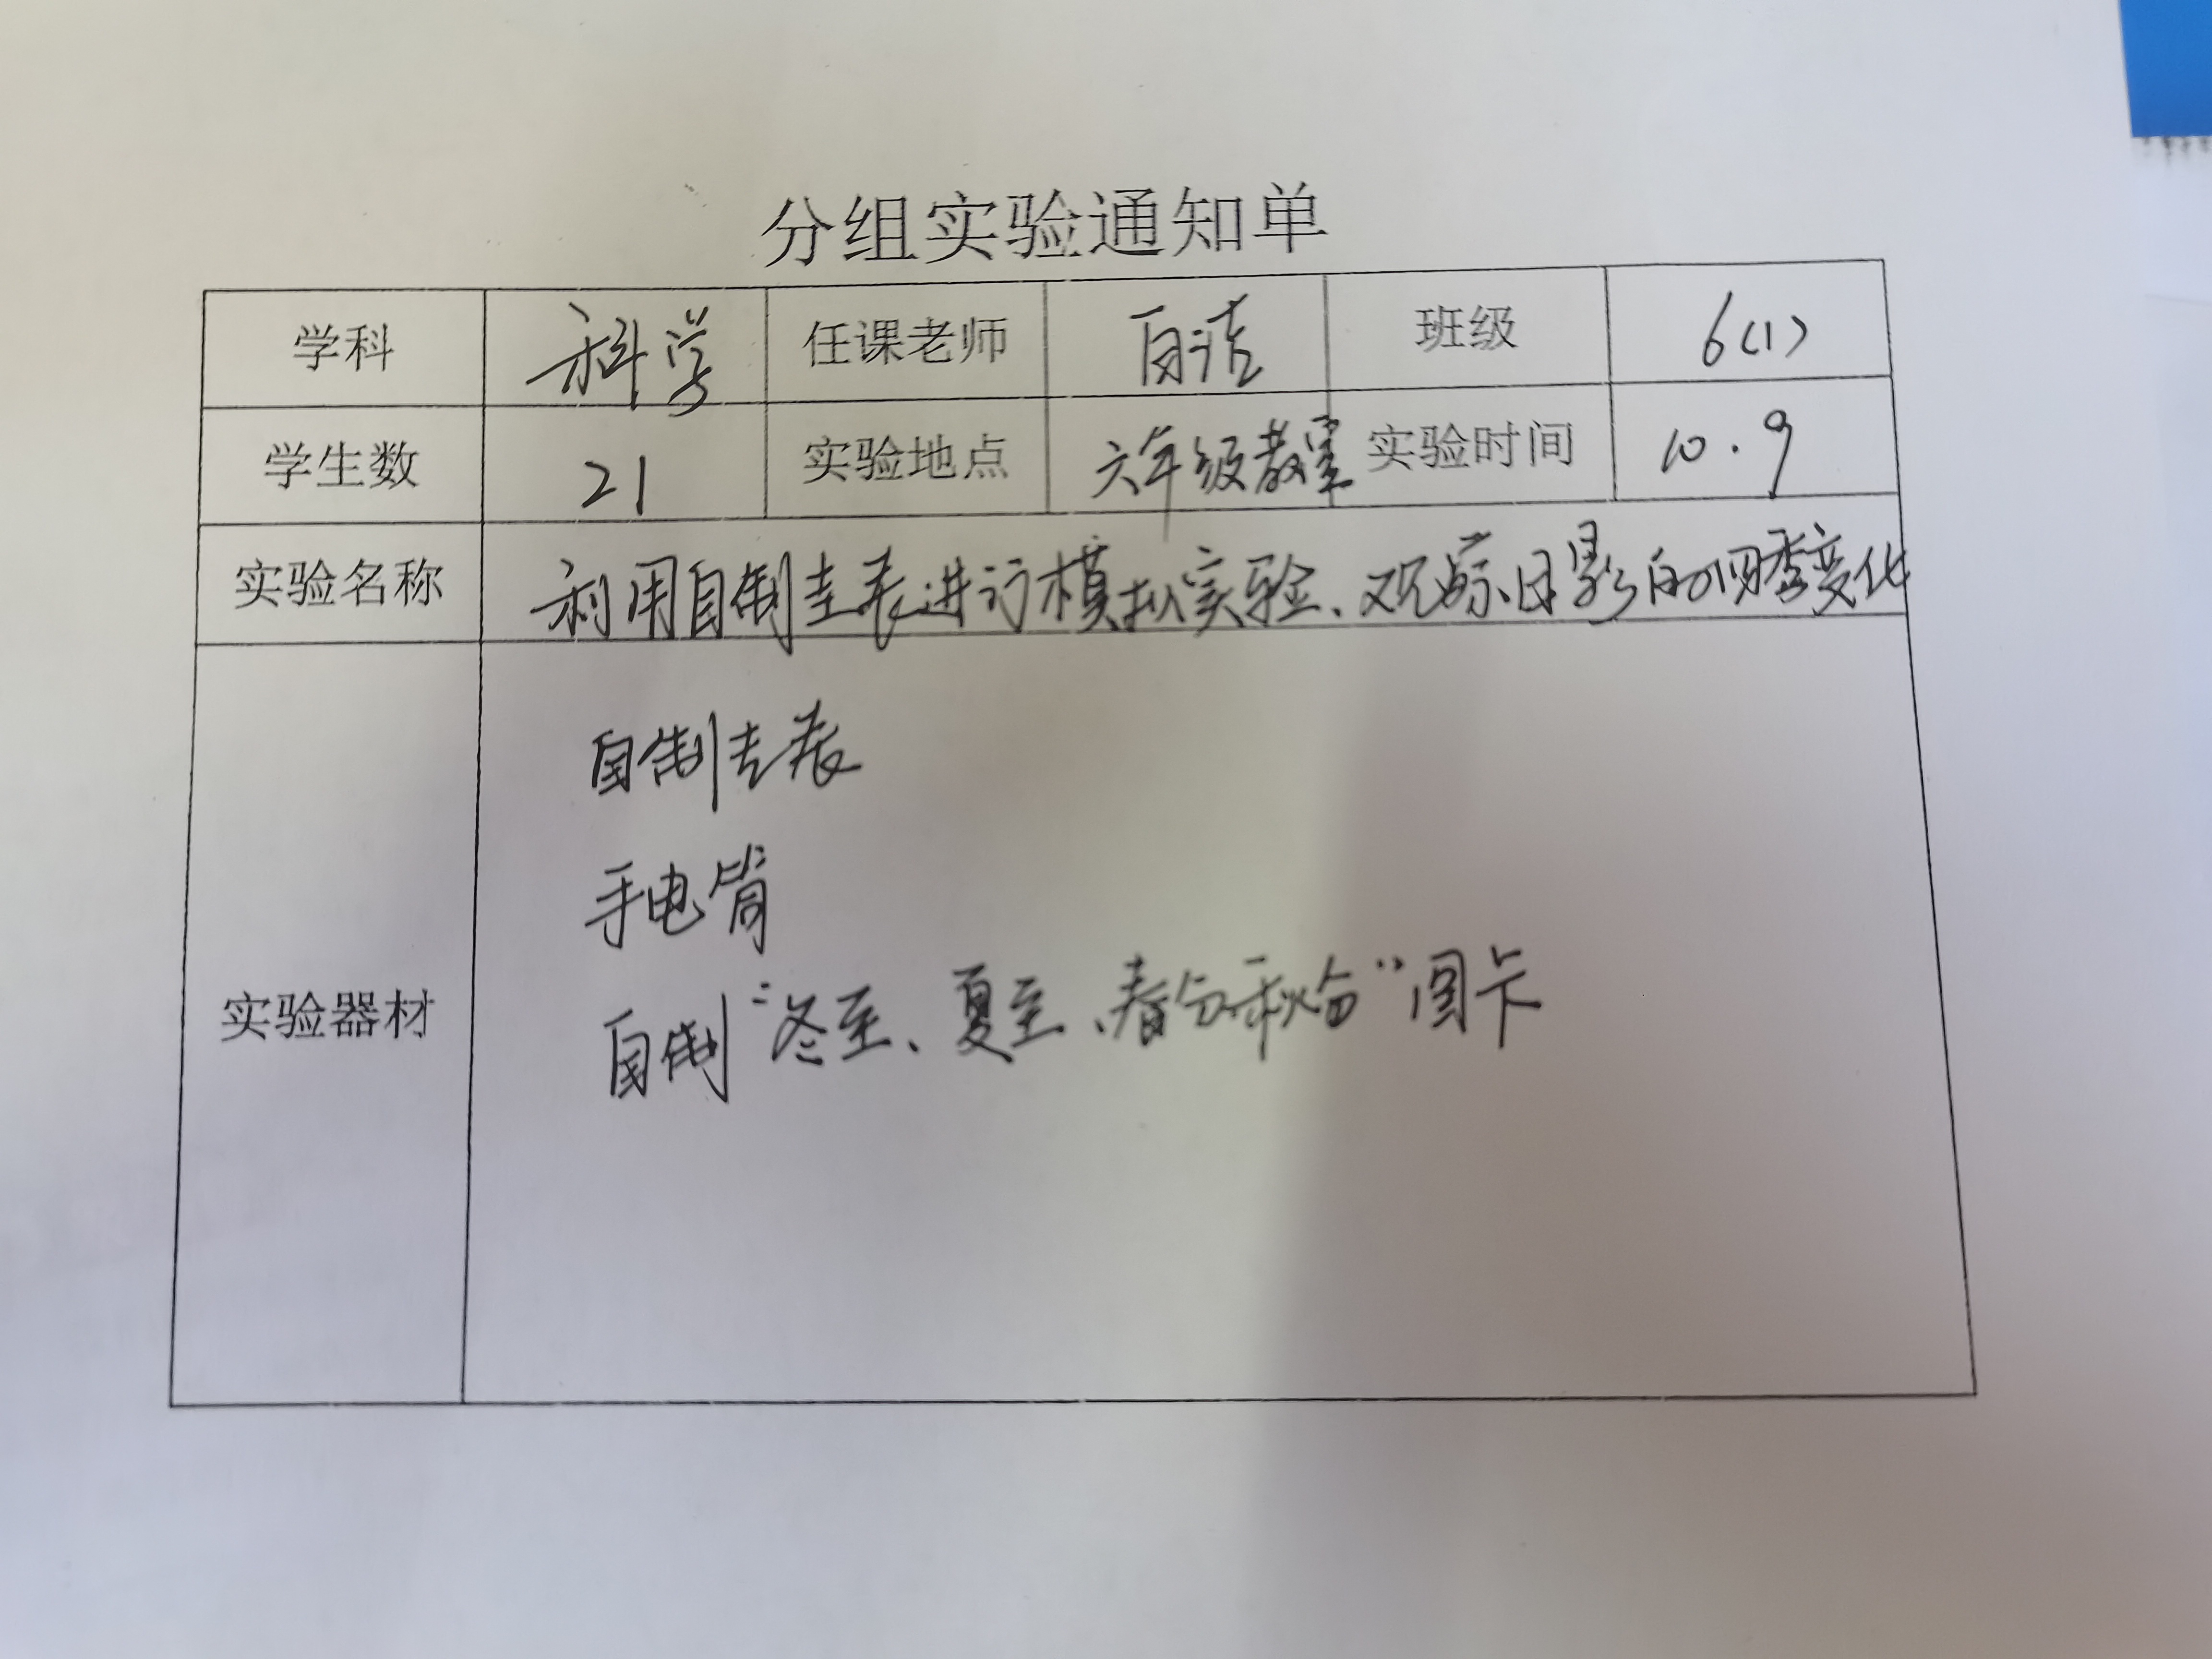 分组实验通知单
学科 科学 任课老师 班级 6(1)
学生数 21 实验地点 六年级教室 实验时间 10.9
实验名称 利用自制圭表进行模拟实验、观察日影的四季变化
自制圭表
手电筒
实验器材 自制"冬至、夏至、春分秋分"图卡